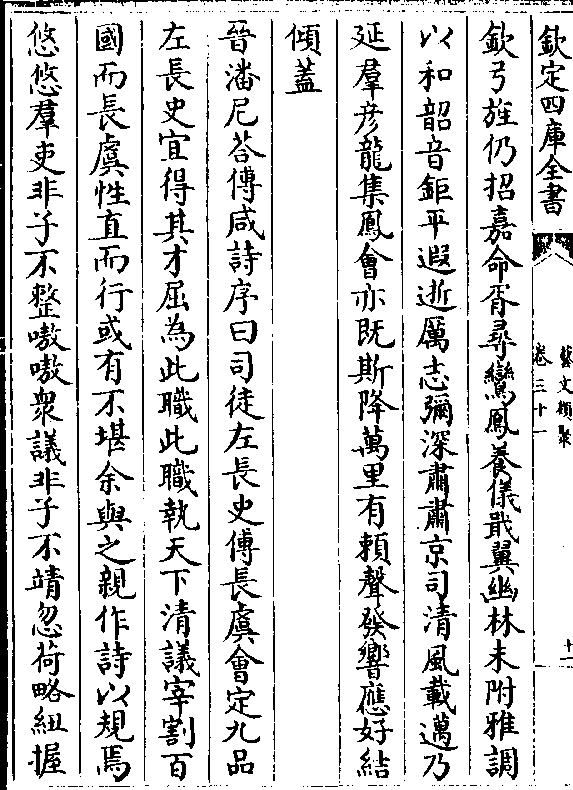 欽定四庫全書
藝文類聚
卷三十一
十一
欽弓旌仍招嘉命胥尋鸞鳳養儀戢翼幽林未附雅調
以和韶音鉅平遐逝厲志彌深肅肅京司清風載邁乃
延羣彦龍集鳳會亦既斯降萬里有頼聲發響應好結
傾蓋
晉潘尼荅傅咸詩序曰司徒左長史傅長虞會定九品
左長史宜得其才屈為此職此職執天下清議宰割百
國而長虞性直而行或有不堪余與之親作詩以規焉
悠悠羣吏非子不整嗷嗷衆議非子不靖忽荷略紐握